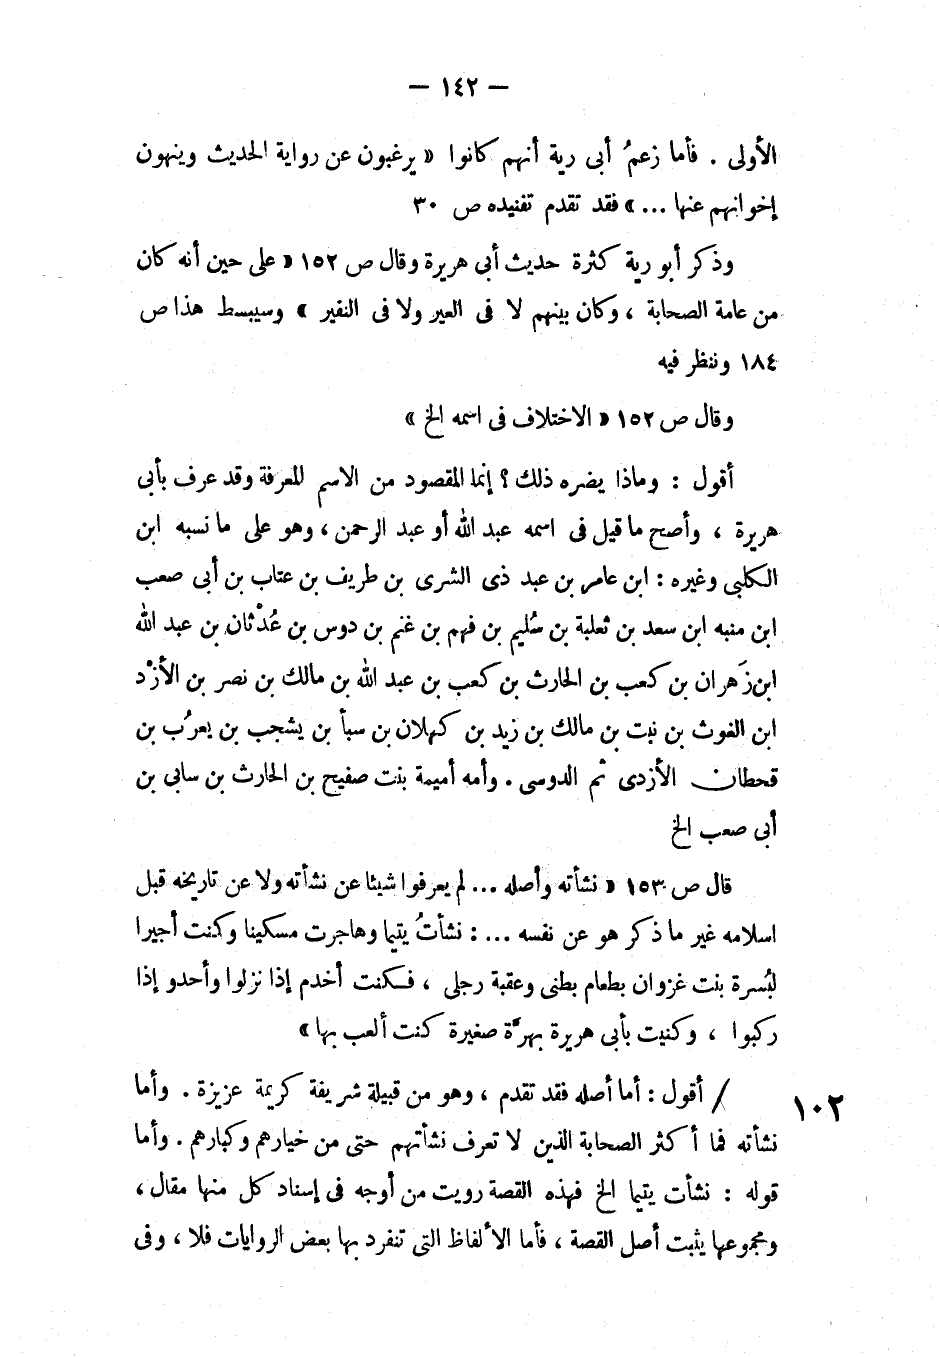 — ١٤٢ —
الأولى . فأما زعمُ أبى رية أنهم كانوا « يرغبون عن رواية الحديث وينهون
إخوانهم عنها ... » فقد تقدم تفنيده ص ٣٠
وذكر أبو رية كثرة حديث أبى هريرة وقال ص ١٥٢ « على حين أنه كان
من عامة الصحابة ، وكان بينهم لا فى العير ولا فى النفير » وسيبسط هذا ص
١٨٤ وننظر فيه
وقال ص ١٥٢ « الاختلاف فى اسمه الخ »
أقول : وماذا يضره ذلك ؟ إنما المقصود من الاسم للمعرفة وقد عرف بأبى
هريرة ، وأصح ما قيل فى اسمه عبد الله أو عبد الرحمن ، وهو على ما نسبه ابن
الكلبى وغيره : ابن عامر بن عبد ذى الشرى بن طريف بن عتاب بن أبى صعب
ابن منبه ابن سعد بن ثعلبة بن سُليم بن فهم بن غنم بن دوس بن عُدْثان بن عبد الله
ابن زَهران بن كعب بن الحارث بن كعب بن عبد الله بن مالك بن نصر بن الأزْد
ابن الغوث بن نبت بن مالك بن زيد بن كهلان بن سبأ بن يشجب بن يعرُب بن
قحطان الأزدى ثم الدوسى . وأمه أميمة بنت صفيح بن الحارث بن سابى بن
أبى صعب الخ
قال ص ١٥٣ « نشأته وأصله ... لم يعرفوا شيئا عن نشأته ولا عن تاريخه قبل
اسلامه غير ما ذكر هو عن نفسه ... : نشأتُ يتيما وهاجرت مسكينا وكنت أجيرا
لبُسرة بنت غزوان بطعام بطنى وعقبة رجلى ، فكنت أخدم إذا نزلوا وأحدو إذا
ركبوا ، وكنيت بأبى هريرة بهرَّة صغيرة كنت ألعب بها »
١٠٢ / أقول : أما أصله فقد تقدم ، وهو من قبيلة شريفة كريمة عزيزة . وأما
نشأته فما أكثر الصحابة الذين لا تعرف نشأتهم حتى من خيارهم وكبارهم . وأما
قوله : نشأت يتيما الخ فهذه القصة رويت من أوجه فى إسناد كل منها مقال ،
ومجموعها يثبت أصل القصة ، فأما الألفاظ التى تنفرد بها بعض الروايات فلا ، وفى